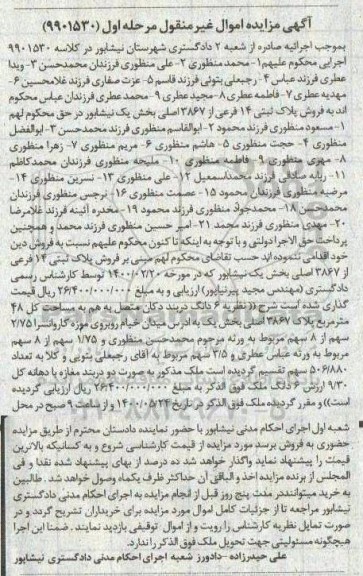 آگهی مزایده اموال غیر منقول مرحله اول (۹۹۰۱۵۳۰)
بموجب اجرائیه صادره از شعبه ۲ دادگستری شهرستان نیشابور در کلاسه ۹۹۰۱۵۳۰
اجرایی محکوم علیهم ۱- محمد منظوری ۲- علی منظوری فرزندان محمدحسن ۳- ویدا
عطری فرزند عباس ۴- رجبعلی بتوئی فرزند قاسم ۵- عزت صفاری فرزند غلامحسین ۶-
مهدیه عطری ۷- فاطمه عطری ۸- مجید عطری ۹- محمد عطری فرزندان عباس محکوم
اند به فروش پلاک ثبتی ۱۴ فرعی از ۳۸۶۷ اصلی بخش یک نیشابور در حق محکوم لهم
۱- مسعود منظوری فرزند محمود ۲- ابوالقاسم منظوری فرزند محمدحسن ۳- ابوالفضل
منظوری ۴- حجت منظوری ۵- هاشم منظوری ۶- مریم منظوری ۷- زهرا منظوری
۸- مهری منظوری ۹- فاطمه منظوری ۱۰- ملیحه منظوری فرزندان محمدکاظم
۱۱- ربابه صادقی فرزند محمداسمعیل ۱۲- علی منظوری ۱۳- نسرین منظوری ۱۴-
مرضیه منظوری فرزندان محمود ۱۵- عصمت منظوری ۱۶- نرجس منظوری فرزندان
محمدحسن ۱۸- محمدجواد منظوری فرزند محمود ۱۹- مخدره آئینه فرزند غلامرضا
۲۰- مهدی منظوری فرزند محمد ۲۱- امیر حسین منظوری فرزند محمد و همچنین
پرداخت حق الاجرا دولتی و با توجه به اینکه تا کنون محکوم علیهم نسبت به فروش دین
خود اقدامی ننموده اند حسب تقاضای محکوم لهم مبنی بر فروش پلاک ثبتی ۱۴ فرعی
از ۳۸۶۷ اصلی بخش یک نیشابور که در مورخه ۱۴۰۰/۰۲/۲۰ توسط کارشناس رسمی
دادگستری (مهندس مجید پیرنیاپور) ارزیابی و به مبلغ ۲۶/۴۰۰/۰۰۰/۰۰۰ ریال قیمت
گذاری شده است شرح (( نظریه ۶ دانگ دربند دکان متصل به هم به مساحت کل ۴۸
مترمربع پلاک ۳۸۶۷ اصلی بخش یک به آدرس میدان خیام روبروی موزه کاروانسرا ۲/۷۵
سهم از ۸ سهم مربوط به ورثه مرحوم محمدحسن منظوری و ۱/۷۵ سهم از ۸ سهم
مربوط به ورثه عباس عطری و ۳/۵ سهم مربوط به آقای رجبعلی بتویی و کلا به تعداد
۵۰۶/۸۸۰ سهم تقسیم گردیده است ملک مذکور به صورت دو دربند مغازه با دهانه کل
۹/۳۰ ارزش ۶ دانگ ملک فوق الذکر به مبلغ ۲۶/۴۰۰/۰۰۰/۰۰۰ ریال ارزیابی گردیده
است)) و مقرر گردیده ملک فوق الذکر در تاریخ ۱۴۰۰/۰۵/۲۴ و از ساعت ۹ صبح در محل
شعبه اول اجرای احکام مدنی نیشابور با حضور نماینده دادستان محترم از طریق مزایده
حضوری به فروش برسد مورد مزایده از قیمت کارشناسی شروع و به کسانیکه بالاترین
قیمت را پیشنهاد نماید واگذار خواهد شد ده درصد از بهای پیشنهاد شده نقدا و فی
المجلس از برنده مزایده اخذ و الباقی آن حداکثر ظرف یکماه وصول خواهد شد . طالبین
به خرید میتوانند در مدت پنج روز قبل از انجام مزایده به اجرای احکام مدنی دادگستری
نیشابور مراجعه تا از جزئیات کامل اموال مورد مزایده برای خریداران تشریح گردد و در
صورت تمایل نظریه کارشناس را رویت و از اموال توقیفی بازدید نمایند . ضمنا این اجرا
هیچگونه مسئولیتی جهت تحویل ملک فوق الذکر را ندارد.
علی حیدرزاده - دادورز شعبه اجرای احکام مدنی دادگستری نیشابور